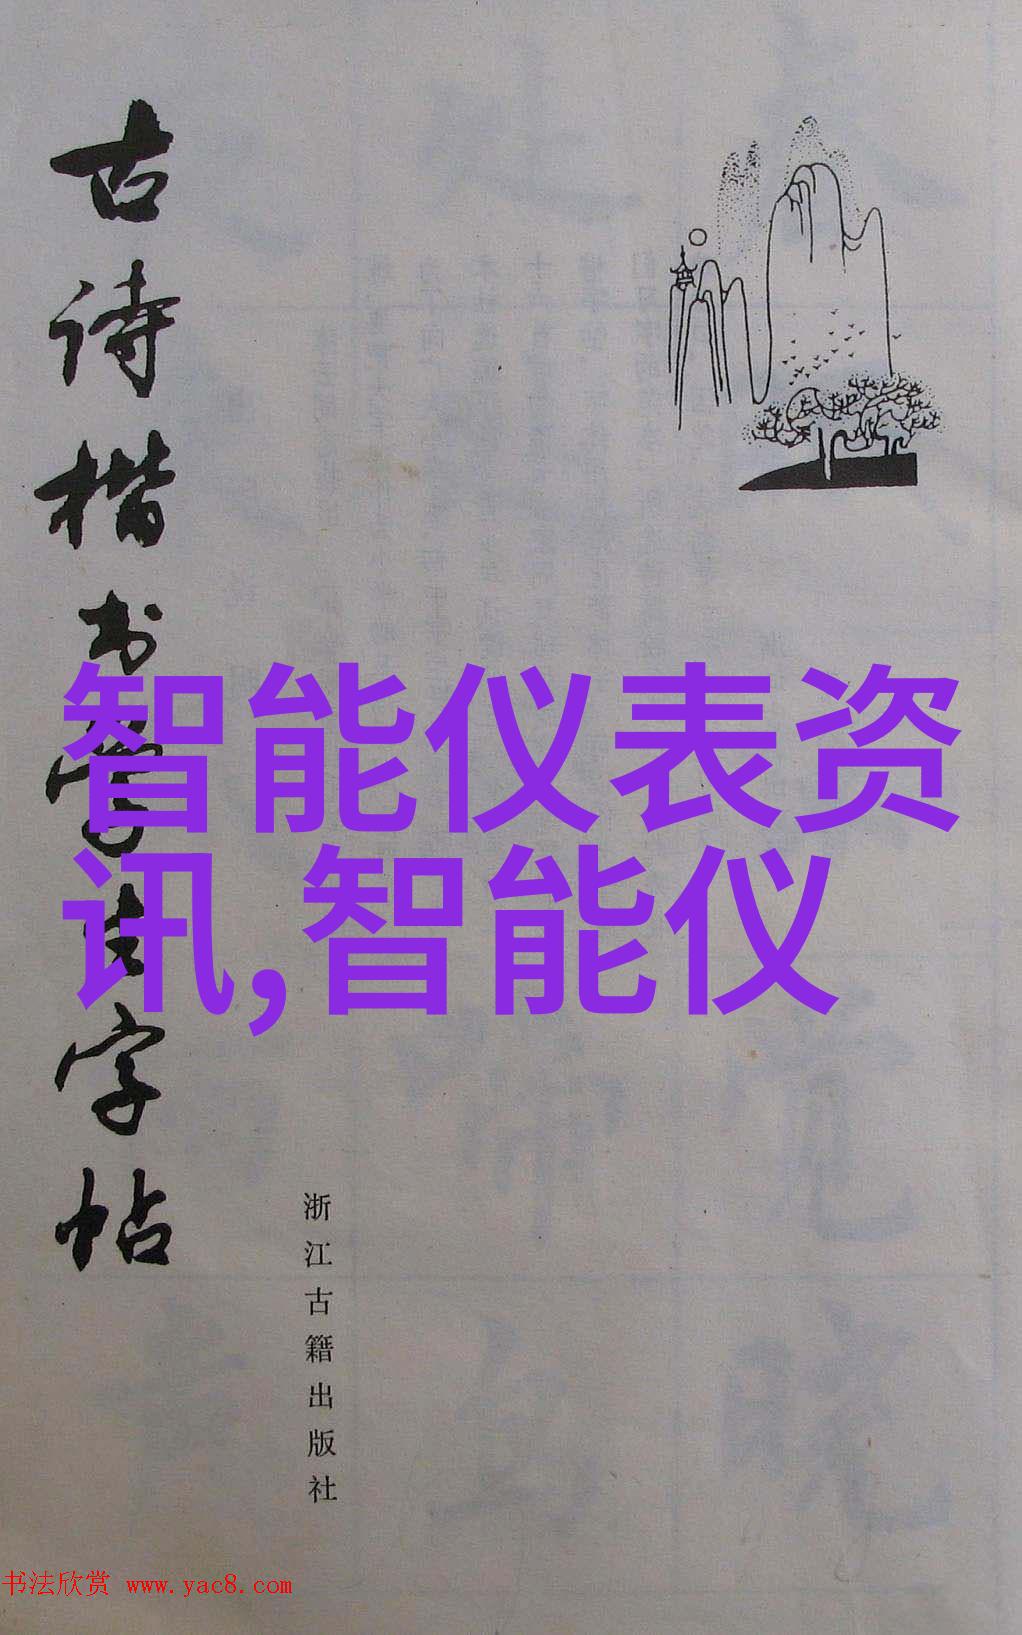 古诗楷书学生字帖
智能仪表资
讯,智能仪
浙江古籍出版社
书法欣赏 www.yac8.com